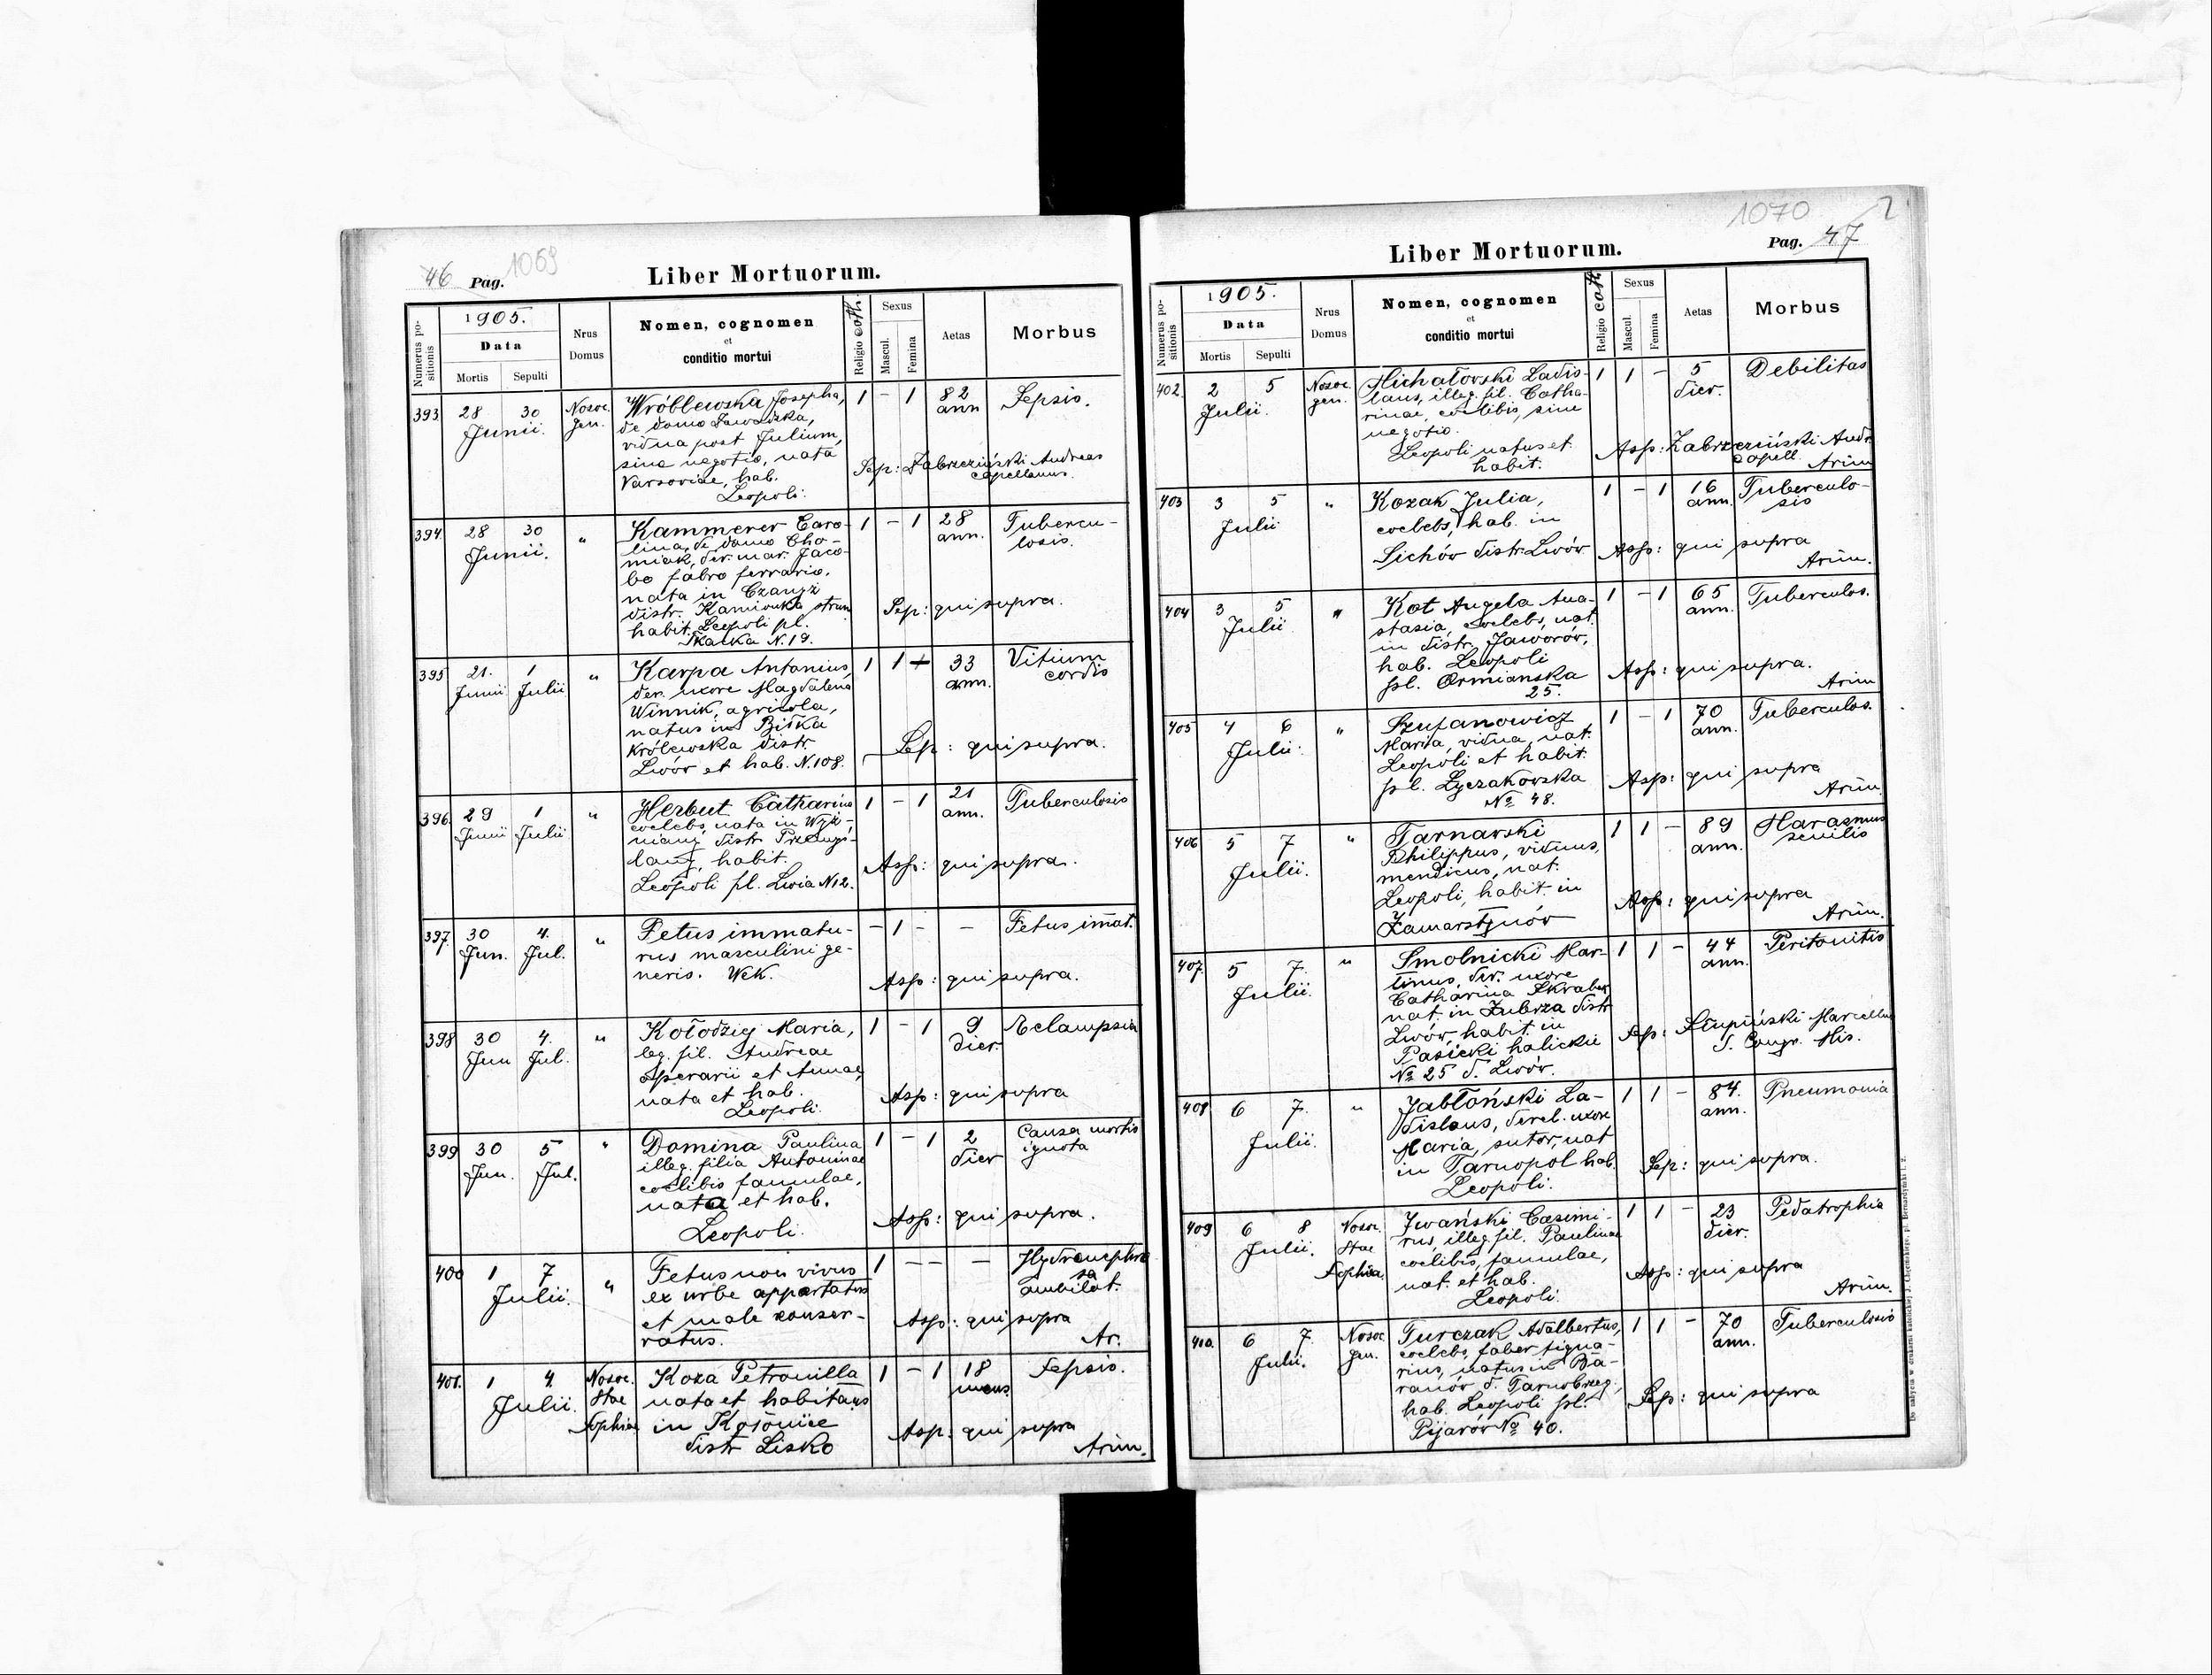 46 Pag. 1069
Liber Mortuorum.
Numerus positionis
1905.
Data
Mortis Sepulti
Nrus Domus
Nomen, cognomen
et
conditio mortui
Religio cath.
Sexus
Mascul. Femina
Aetas
Morbus
393 28 30 Nosoc. Wróblewska Josepha, 1 - 1 82 Sepsis.
Junii. gen. de domo Zawadzka, ann
vidua post Julium,
sine negotio, nata Sep: Zabrzeziński Andreas
Varsoviae, hab. capellanus.
Leopoli.
394 28 30 " Kammerer Caro- 1 - 1 28 Tubercu-
Junii. lina, de domo Cho- ann. losis.
miak, der. mar. Jaco-
bo fabro ferrario,
nata in Czanyż
distr. Kamionka strum Sep: qui supra.
habit. Leopoli pl.
Skałka N. 19.
395 21. 1 " Karpa Antonius, 1 1 + 33 Vitium
Junii Julii der. uxore Magdalena ann. cordis
Winnik, agricola,
natus in Biłka
Królewska distr. Sep: qui supra.
Lwów et hab. N. 108.
396. 29 1 " Herbut Catharina 1 - 1 21 Tuberculosis
Junii Julii coelebs, nata in Wyż- ann.
niany distr. Przemyś-
lany, habit. Assp: qui supra.
Leopoli pl. Lwia N 12.
397. 30 4. " Fetus immatu- - 1 - - Fetus imat.
Jun. Jul. rus masculini ge-
neris. Wek. Assp: qui supra.
398 30 4. " Kołodziej Maria, 1 - 1 9 Eclampsia
Jun Jul. leg. fil. Andreae dier.
operarii et Annae,
nata et hab. Assp: qui supra
Leopoli.
399 30 5 " Domina Paulina 1 - 1 2 Causa mortis
Jun. Jul. illeg. filia Antoninae dier ignota
coelibis famulae,
nata et hab. Assp: qui supra.
Leopoli.
400 1 7 " Fetus non vivus 1 - - - Hydronephro
Julii. ex urbe apportatus
et male conser- Assp: qui supra
vatus. Ar.
401. 1 4. Nosoc. Koza Petronilla 1 - 1 18 Sepsis.
Julii. Stae nata et habitans mens
Sophiae in Assp: qui supra
distr Lisko Arim.
1070 2
Pag. 47
Liber Mortuorum.
Numerus positionis
1905.
Data
Mortis Sepulti
Nrus Domus
Nomen, cognomen
et
conditio mortui
Religio cath.
Sexus
Mascul. Femina
Aetas
Morbus
402. 2 5 Nosoc. Michałowski Ladis- 1 1 - 5 Debilitas
Julii. gen. laus, illeg. fil. Catha- dier.
rinae, coelibis, sine
negotio. Assp: Zabrzeziński Andr.
Leopoli natus et capell.
habit. Arim
403 3 5 " Kozak Julia, 1 - 1 16 Tuberculo-
Julii coelebs, hab. in ann. sis
Sichów distr. Lwów Assp: qui supra
Arim.
404 3 5 " Kot Angela Ana- 1 - 1 65 Tuberculos.
Julii stasia, coelebs, nat. ann.
in distr. Jaworów,
hab. Leopoli Assp: qui supra.
pl. Ormianska Arim
25.
405 4 6 " Szufanowicz 1 - 1 70 Tuberculos.
Julii. Maria, vidua, nat. ann.
Leopoli et habit.
pl. Łyczakowska Assp: qui supra
No 48. Arim.
406 5 7 " Tarnawski 1 1 - 89 Marasmus
Julii. Philippus, viduus, ann. senilis
mendicus, nat.
Leopoli, habit. in Assp: qui supra
Zamarstynów Arim.
407. 5 7. " Smolnicki Mar- 1 1 - 44 Peritonitis
Julii. tinus, der. uxore ann.
Catharina Skrabek
nat. in Zubrza distr
Lwów, habit. in Sep: Słupiński Marcellus
Pasieki halickie S. Congr. Mis.
No 25 d. Lwów.
408 6 7. " Jabłoński La- 1 1 - 84. Pneumonia
Julii. dislaus, derel. uxore ann.
Maria, sutor, nat
in Tarnopol hab. Sep: qui supra.
Leopoli.
409 6 8 Nosoc. Iwański Casimi- 1 1 - 23 Pedatrophia
Julii. Stae rus, illeg. fil. Paulinae dier.
Sophiae. coelibis, famulae,
nat. et hab. Assp: qui supra
Leopoli. Arim.
410. 6 7. Nosoc. Turczak Adalbertus, 1 1 - 70 Tuberculosis
Julii. gen. coelebs, faber ligna- ann.
rius, natus in Ba-
ranów d. Tarnobrzeg, Sep: qui supra
hab. Leopoli pl.
Pijarów No 40.